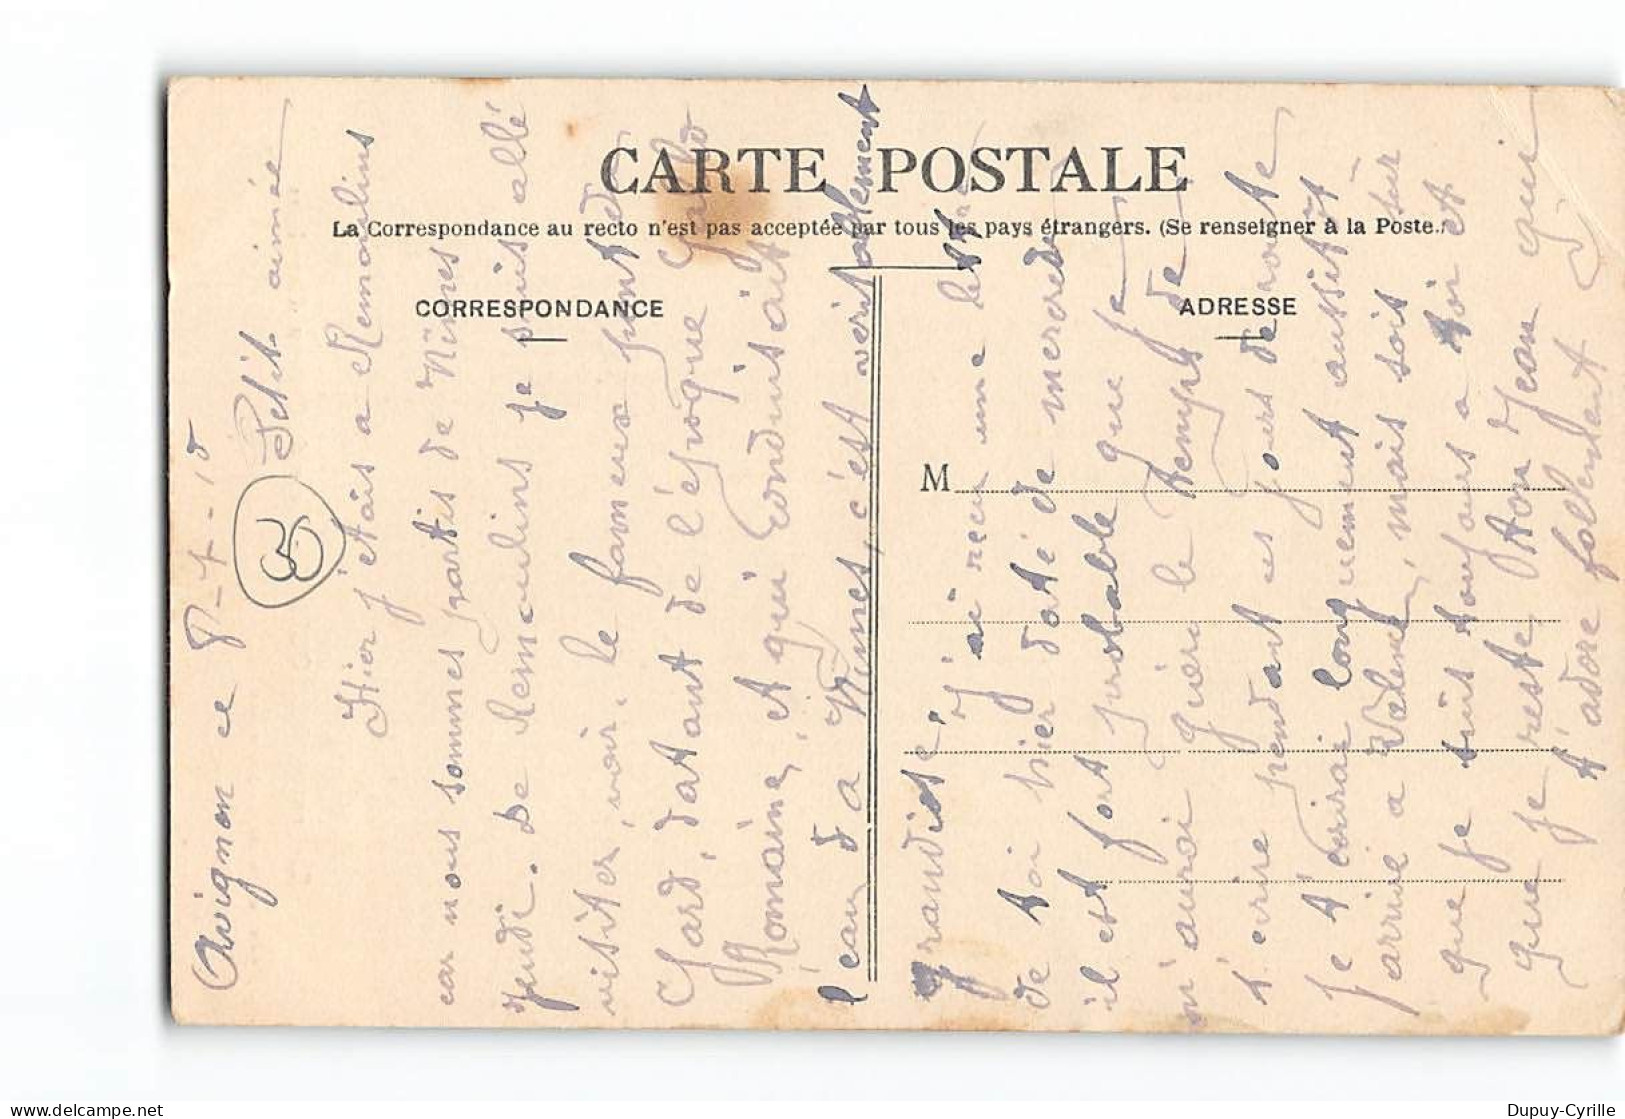 CARTE POSTALE
La Correspondance au recto n'est pas acceptée par tous les pays étrangers. (Se renseigner à la Poste.)
CORRESPONDANCE
ADRESSE
M
Avignon ce 8-4-10
30
Petit aimée
Hier j'étais a Remoulins
car nous sommes partis de Nimes
jeudi. De Remoulins je suis allé
visiter, voir, le fameux pont du
Gard, datant de l'époque Gallo
Romaine, et qui conduisait
l'eau a Nimes, c'est véritablement
grandiose, J'ai recu une lettre
de toi hier daté de mercredi
il est fort probable que je
n'aurai guère le temps de
t'ecrire pendant ces jours de route
Je t'écrirai longuement aussitôt
arrivé a Valence, mais sois sur
que je suis toujours a toi et
que je reste ton Jean qui
t'adore follement